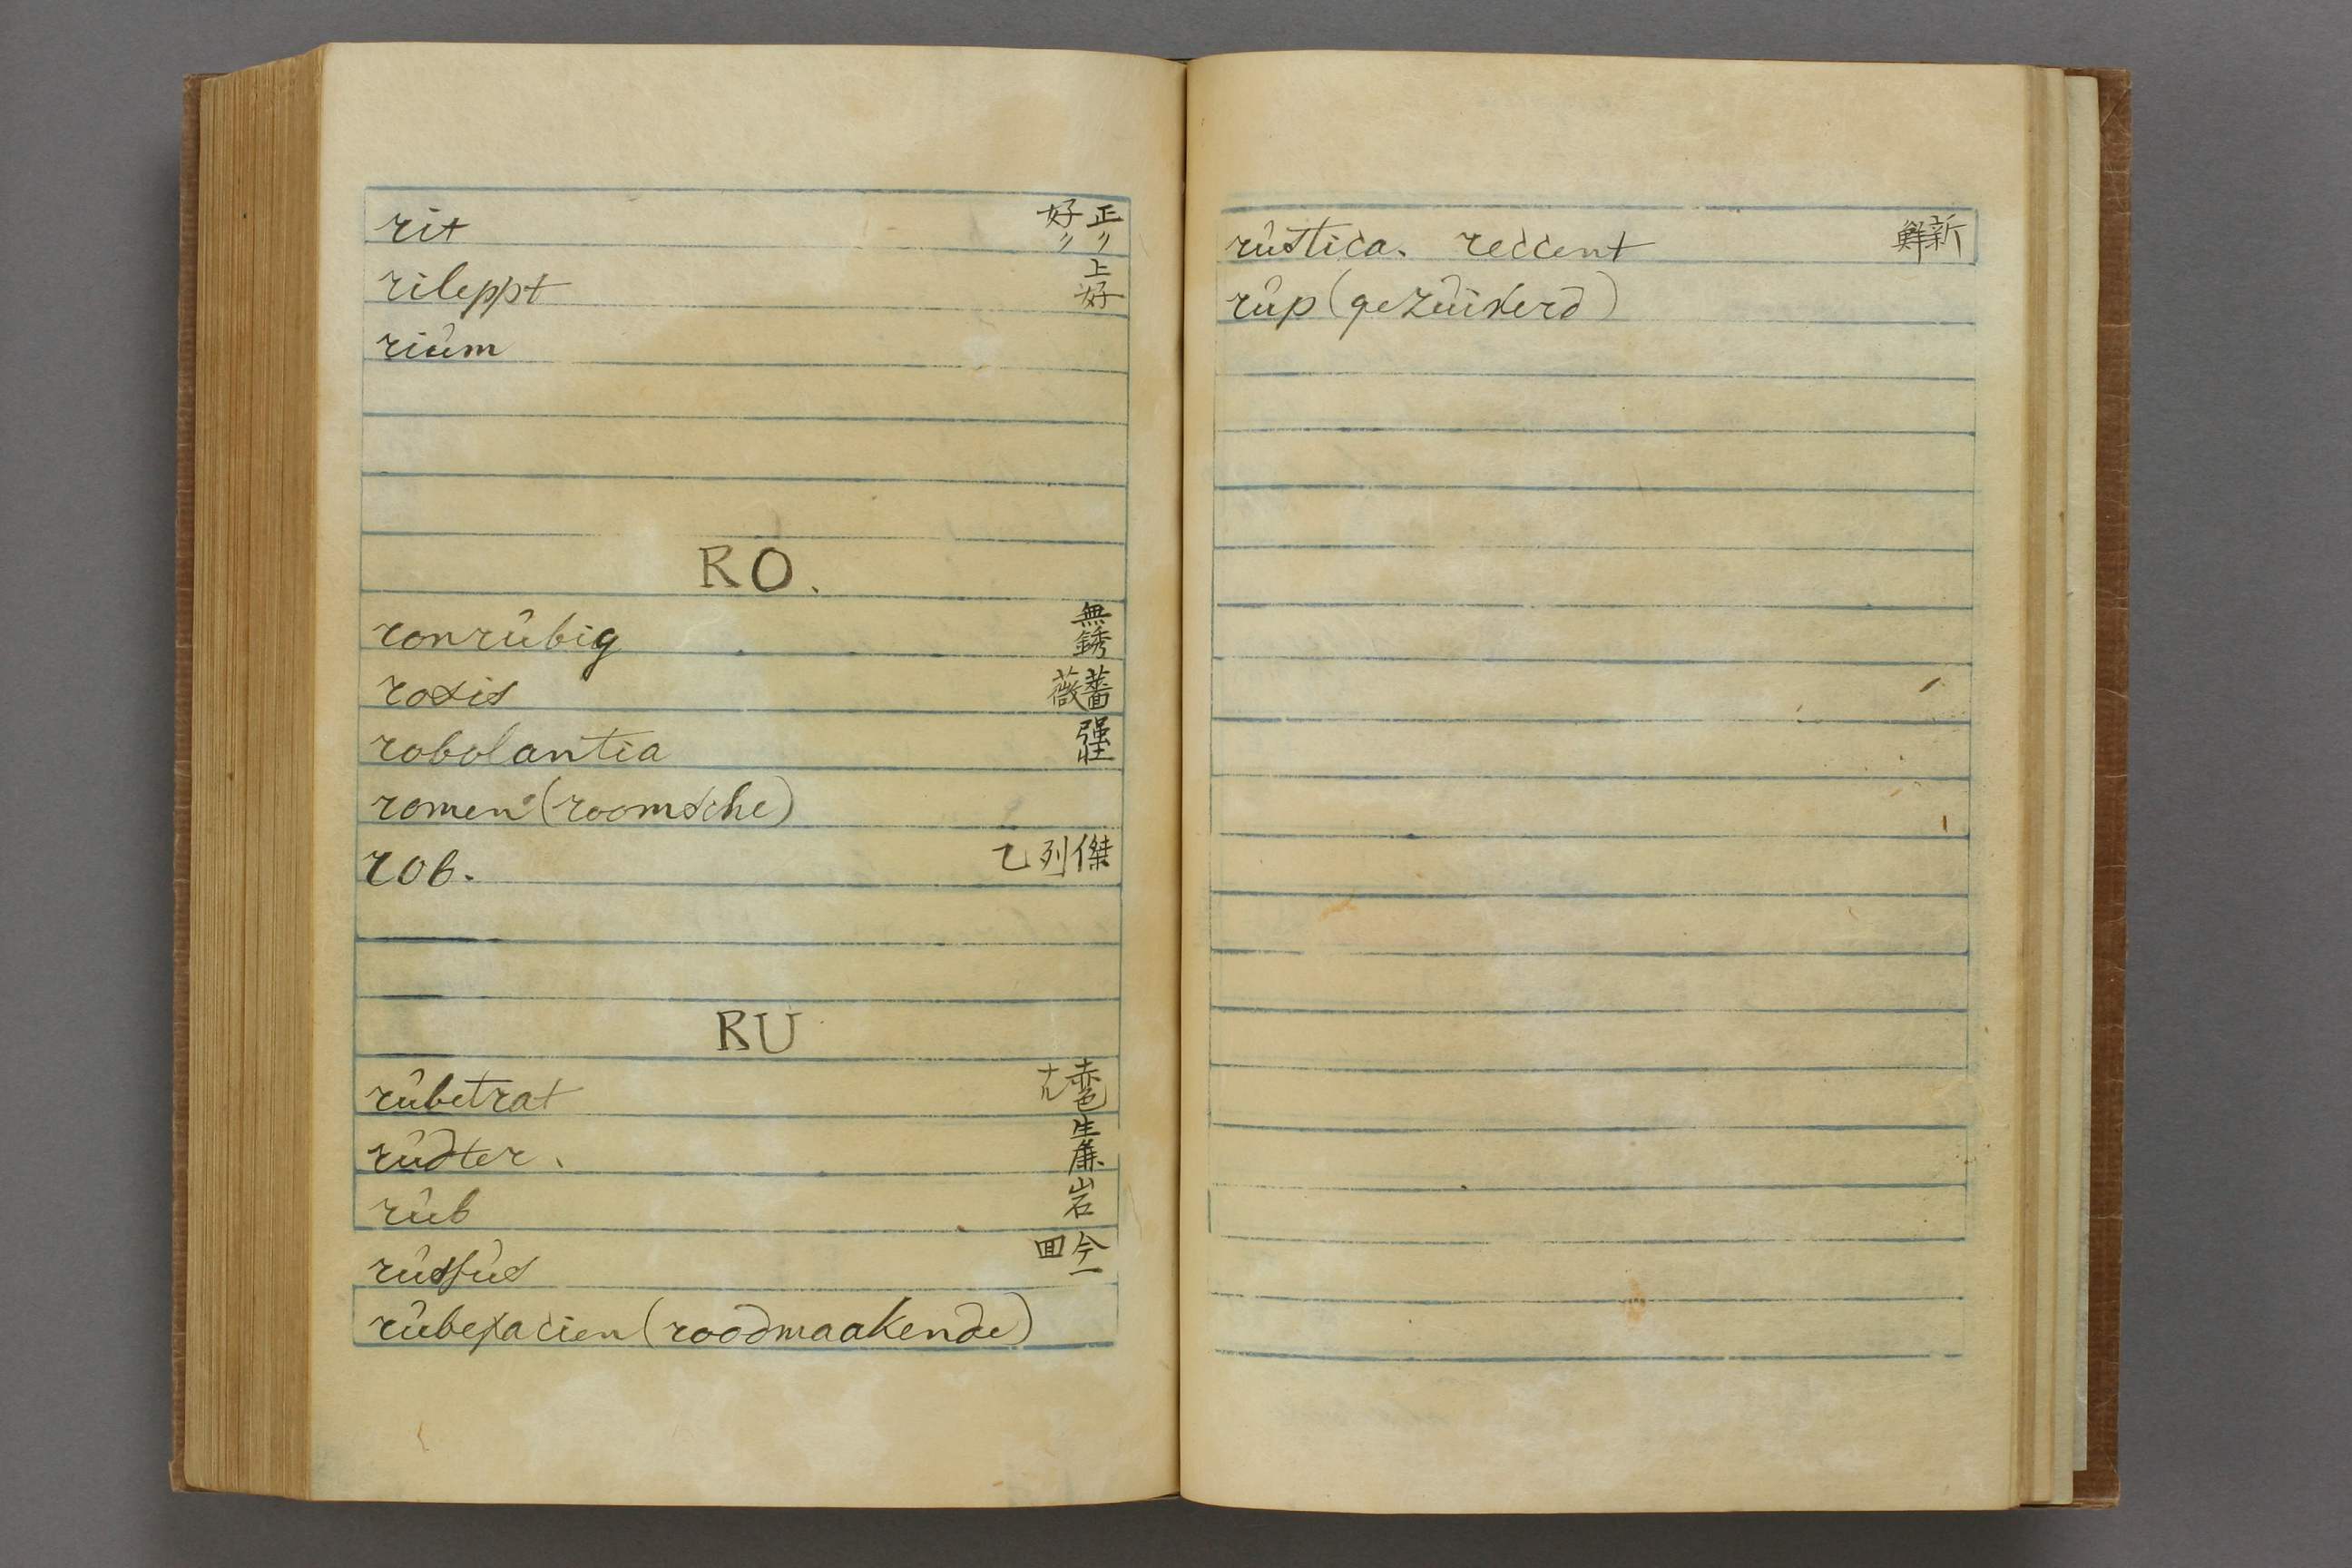 rit 正〃好〃
rileppt 上好
riûm
RO.
ronrûbig 無銹
rosis 薔薇
robolantia 強壯
romen (roomsche)
rob. 傑列乙
RU
rûbetrat 赤色ナル
rûdter. 生䕠
rûb 岩
rûsfûs 今一回
rûbefacien (roodmaakende)
rûstica. reccent 新鮮
rûp (gezûikerd)